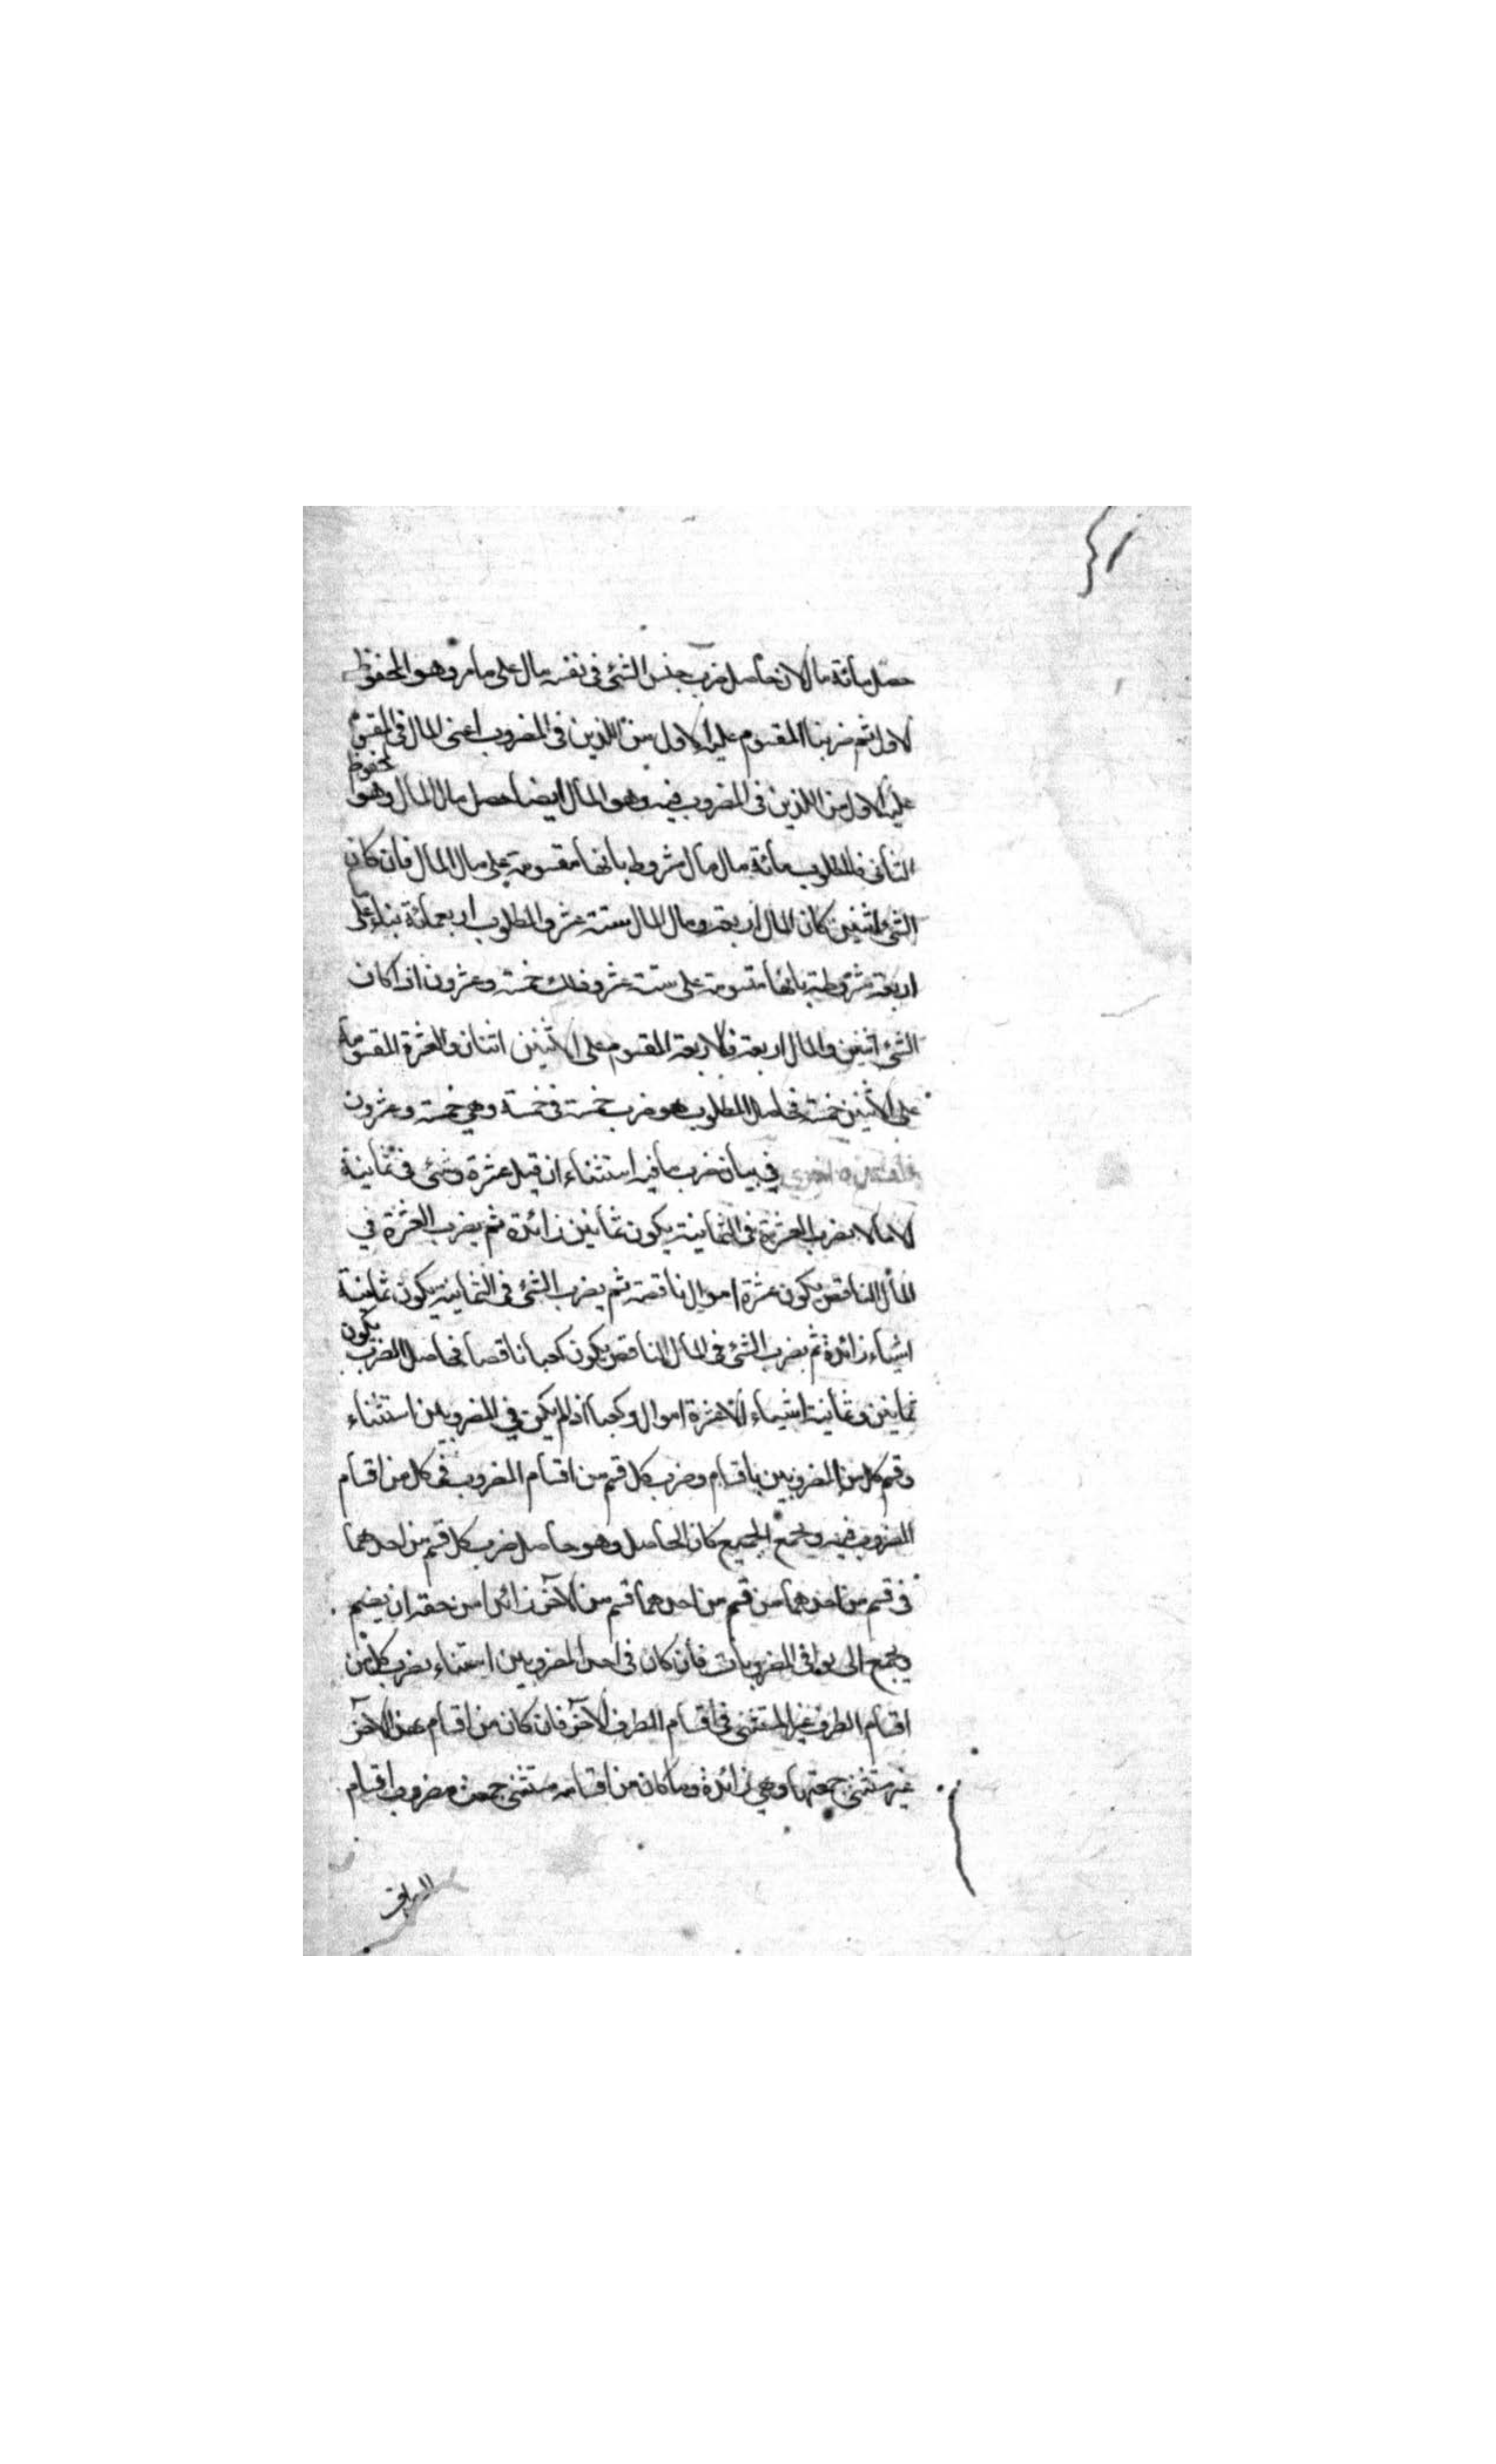 حصل مائة مال لان حاصل ضرب جنس الشئ فى نفسه مال على ما مر وهو المحفوظ
الاول ثم ضربنا المقسوم عليه الاول من اللذين فى المضروب اعنى المال فى المقسوم
عليه الاول من اللذين فى المضروب فيه وهو المال ايضا حصل مال المال وهو المحفوظ
الثانى فالمطلوب مائة مال مال مشروط بانها مقسومة على مال المال فان كان
الشئ اثنين كان المال اربعة ومال المال ستة عشر والمطلوب اربعمائة بناء على
اربعة مشروطة بانها مقسومة على ستة عشر وذلك خمسة وعشرون اذا كان
الشئ اثنين والمال اربعة فالاربعة المقسوم على الاثنين اثنان والعشرة المقسومة
على الاثنين خمسة فحاصل المطلوب هو ضرب خمسة فى خمسة وهى خمسة وعشرون
فى بيان ضرب ما فيه استثناء ان قيل عشرة وشئ فى ثمانية
الا مالا يضرب العشرة فى الثمانية يكون ثمانين زائدة ثم يضرب العشرة في
المال الناقص يكون عشرة اموال ناقصة ثم يضرب الشئ فى الثمانية يكون ثمانية
اشياء زائدة ثم يضرب الشئ فى المال الناقص يكون كعبا ناقصا فحاصل الضرب يكون
ثمانين وثمانية اشياء الا عشرة اموال وكعبا اذا لم يكن في المضروبين استثناء
وقسم كل من المضروبين باقسام وضرب كل قسم من اقسام المضروب فى كل من اقسام
المضروب فيه ويجمع الجميع كان الحاصل وهو حاصل ضرب كل قسم من احدهما
فى قسم من احدهما من قسم من احدهما قسم من الآخر زائدا من حقه ان يضم
ويجمع الى بواقى المضروبات فان كان فى احد المضروبين استثناء يضرب كل من
اقسام الطرف غير المستثنى فى اقسام الطرف الآخر فان كان من اقسام الآخر
غير مستثنى جمعتها وهى زائدة وما كان من اقسامه مستثنى جمعت مضروب اقسام